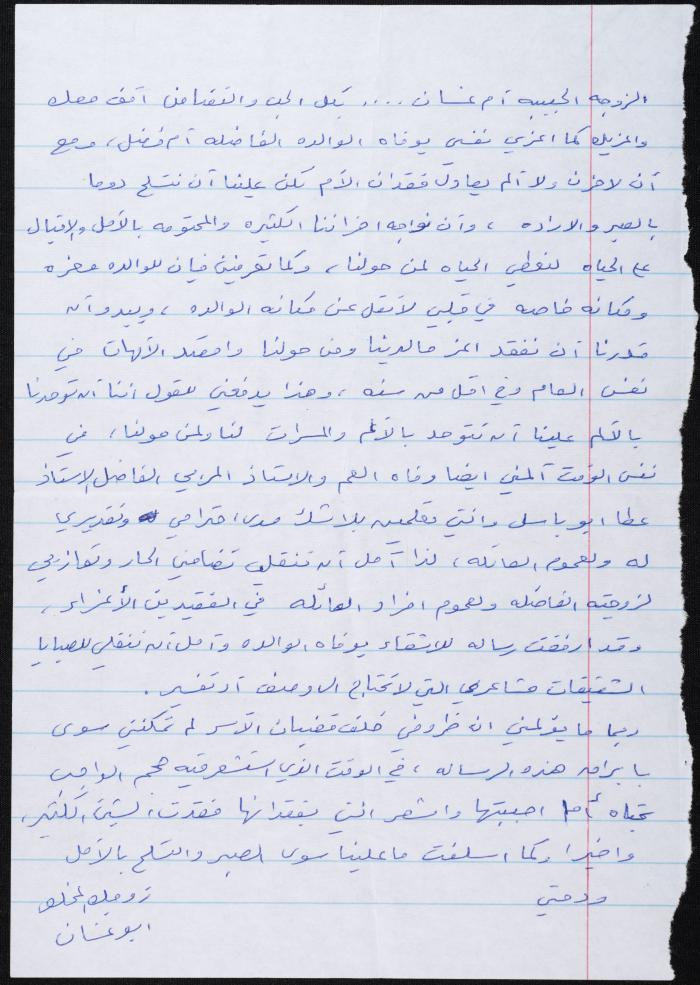 الزوجه الحبيبه أم غسان .... بكل الحب والتضامن أقف معك
واعزيك كما اعزي نفسي بوفاه الوالده الفاضله أم فضل، ومع
أن لا حزن ولا ألم يعادل فقدان الأم لكن علينا أن نتسلح دوما
بالصبر والاراده ، وأن نواجه احزاننا الكثيره والمحتومه بالأمل والاقبال
على الحياه لنعطي الحياه لمن حولنا، وكما تعرفين فإن للوالده معزه
ومكانه خاصه في قلبي لا تقل عن مكانه الوالده ، ويبدو أن
قدرنا أن نفقد اعز ما لدينا ومن حولنا وافتقد الأمهات في
نفس العام وفي اقل من سنه ، وهذا يدفعني للقول أننا أن توحدنا
بالألم علينا أن نتوحد بالألم والمسرات لنا ولمن حولنا، في
نفس الوقت آلمني ايضا وفاه العم والاستاذ المربي الفاضل الاستاذ
عطا ابو باسل وانتي تعلمين بلا شك مدى احترامي وتقديري
له ولعموم العائله، لذا آمل أن تنقلي تضامني الحار وتعازيي
لزوجته الفاضله ولعموم افراد العائله في الفقيدين الأعزاء،
وقد ارفقت رساله للاشقاء بوفاه الوالده وآمل أن تنقلي للصبايا
الشقيقات مشاعري التي لا تحتاج الى وصف أو تفسير.
ربما ما يؤلمني ان ظروفي خلف قضبان الأسر لم تمكنني سوى
بابراق هذه الرساله ، في الوقت الذي استشعر فيه حجم الواجب
تجاه أم احببتها واشعر انني بفقدانها فقدت الشيئ الكثير،
واخيرا وكما اسلفت ما علينا سوى الصبر والتسلح بالأمل
ودمتي
زوجك المخلص
ابو غسان